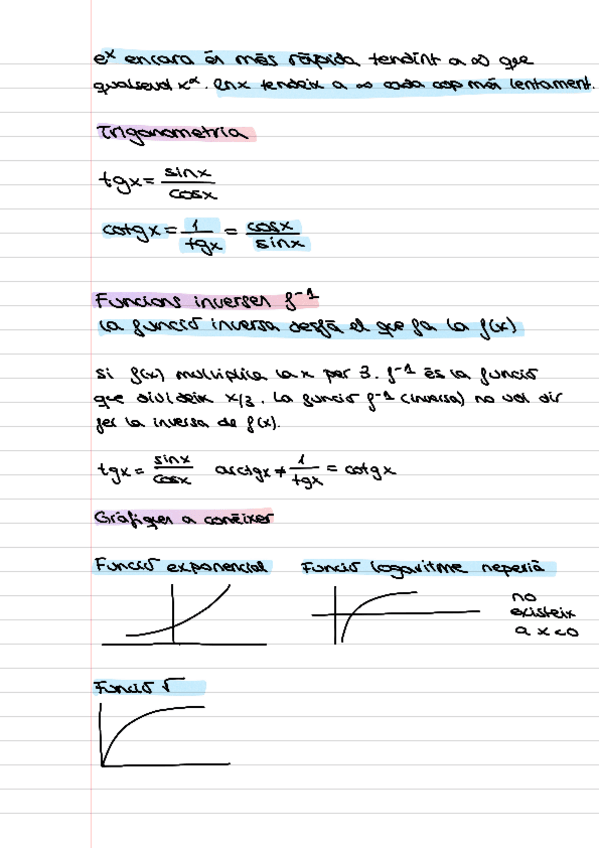 e^x encara és més ràpida tendint a ∞ que
qualsevol x^α. lnx tendeix a ∞ cada cop més lentament.
Trigonometria
tgx = sinx/cosx
cotgx = 1/tgx = cosx/sinx
Funcions inverses f^-1
La funció inversa desfà el que fa la f(x)
Si f(x) multiplica la x per 3. f^-1 és la funció
que divideix x/3. La funció f^-1 (inversa) no vol dir
fer la inversa de f(x).
tgx = sinx/cosx arctgx ≠ 1/tgx = cotgx
Gràfiques a conèixer
Funció exponencial
Funció logaritme neperià
no
existeix
a x<0
Funció √